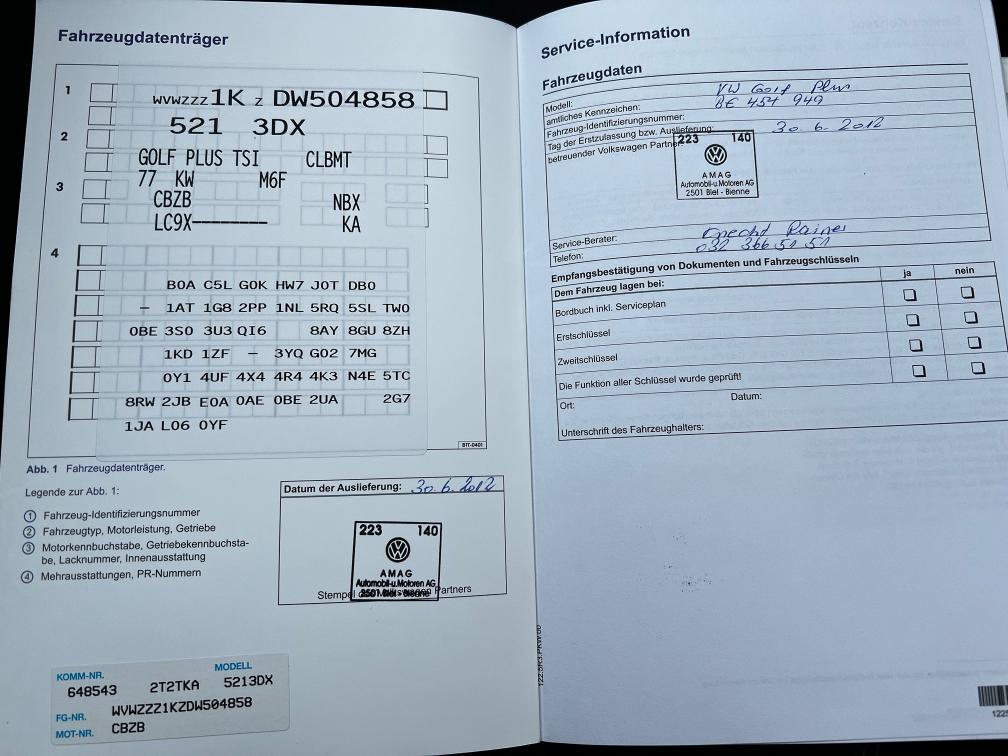 Fahrzeugdatenträger
1
WVWZZZ 1K Z DW504858
521 3DX
2
GOLF PLUS TSI CLBMT
77 KW M6F
3
CBZB NBX
LC9X--------- KA
4
B0A C5L G0K HW7 J0T DB0
– 1AT 1G8 2PP 1NL 5RQ 5SL TW0
0BE 3S0 3U3 QI6 8AY 8GU 8ZH
1KD 1ZF – 3YQ G02 7MG
0Y1 4UF 4X4 4R4 4K3 N4E 5TC
8RW 2JB E0A 0AE 0BE 2UA 2G7
1JA L06 0YF
BIT-0401
Abb. 1 Fahrzeugdatenträger.
Legende zur Abb. 1:
1 Fahrzeug-Identifizierungsnummer
2 Fahrzeugtyp, Motorleistung, Getriebe
3 Motorkennbuchstabe, Getriebekennbuchsta-
be, Lacknummer, Innenausstattung
4 Mehrausstattungen, PR-Nummern
Datum der Auslieferung: 30.6.2012
223 140
AMAG
Automobil-u.Motoren AG
2501 Biel - Bienne
Stempel des Volkswagen Partners
KOMM-NR. MODELL
648543 2T2TKA 5213DX
FG-NR. WVWZZZ1KZDW504858
MOT-NR. CBZB
Service-Information
Fahrzeugdaten
Modell: VW Golf Plus
amtliches Kennzeichen: BE 454 949
Fahrzeug-Identifizierungsnummer:
Tag der Erstzulassung bzw. Auslieferung: 30.6.2012
betreuender Volkswagen Partner:
223 140
AMAG
Automobil-u.Motoren AG
2501 Biel - Bienne
Service-Berater: Knecht Rainer
Telefon: 032 366 51 51
Empfangsbestätigung von Dokumenten und Fahrzeugschlüsseln
Dem Fahrzeug lagen bei: ja nein
Bordbuch inkl. Serviceplan
Erstschlüssel
Zweitschlüssel
Die Funktion aller Schlüssel wurde geprüft!
Ort: Datum:
Unterschrift des Fahrzeughalters:
122.5R3.PKW.00